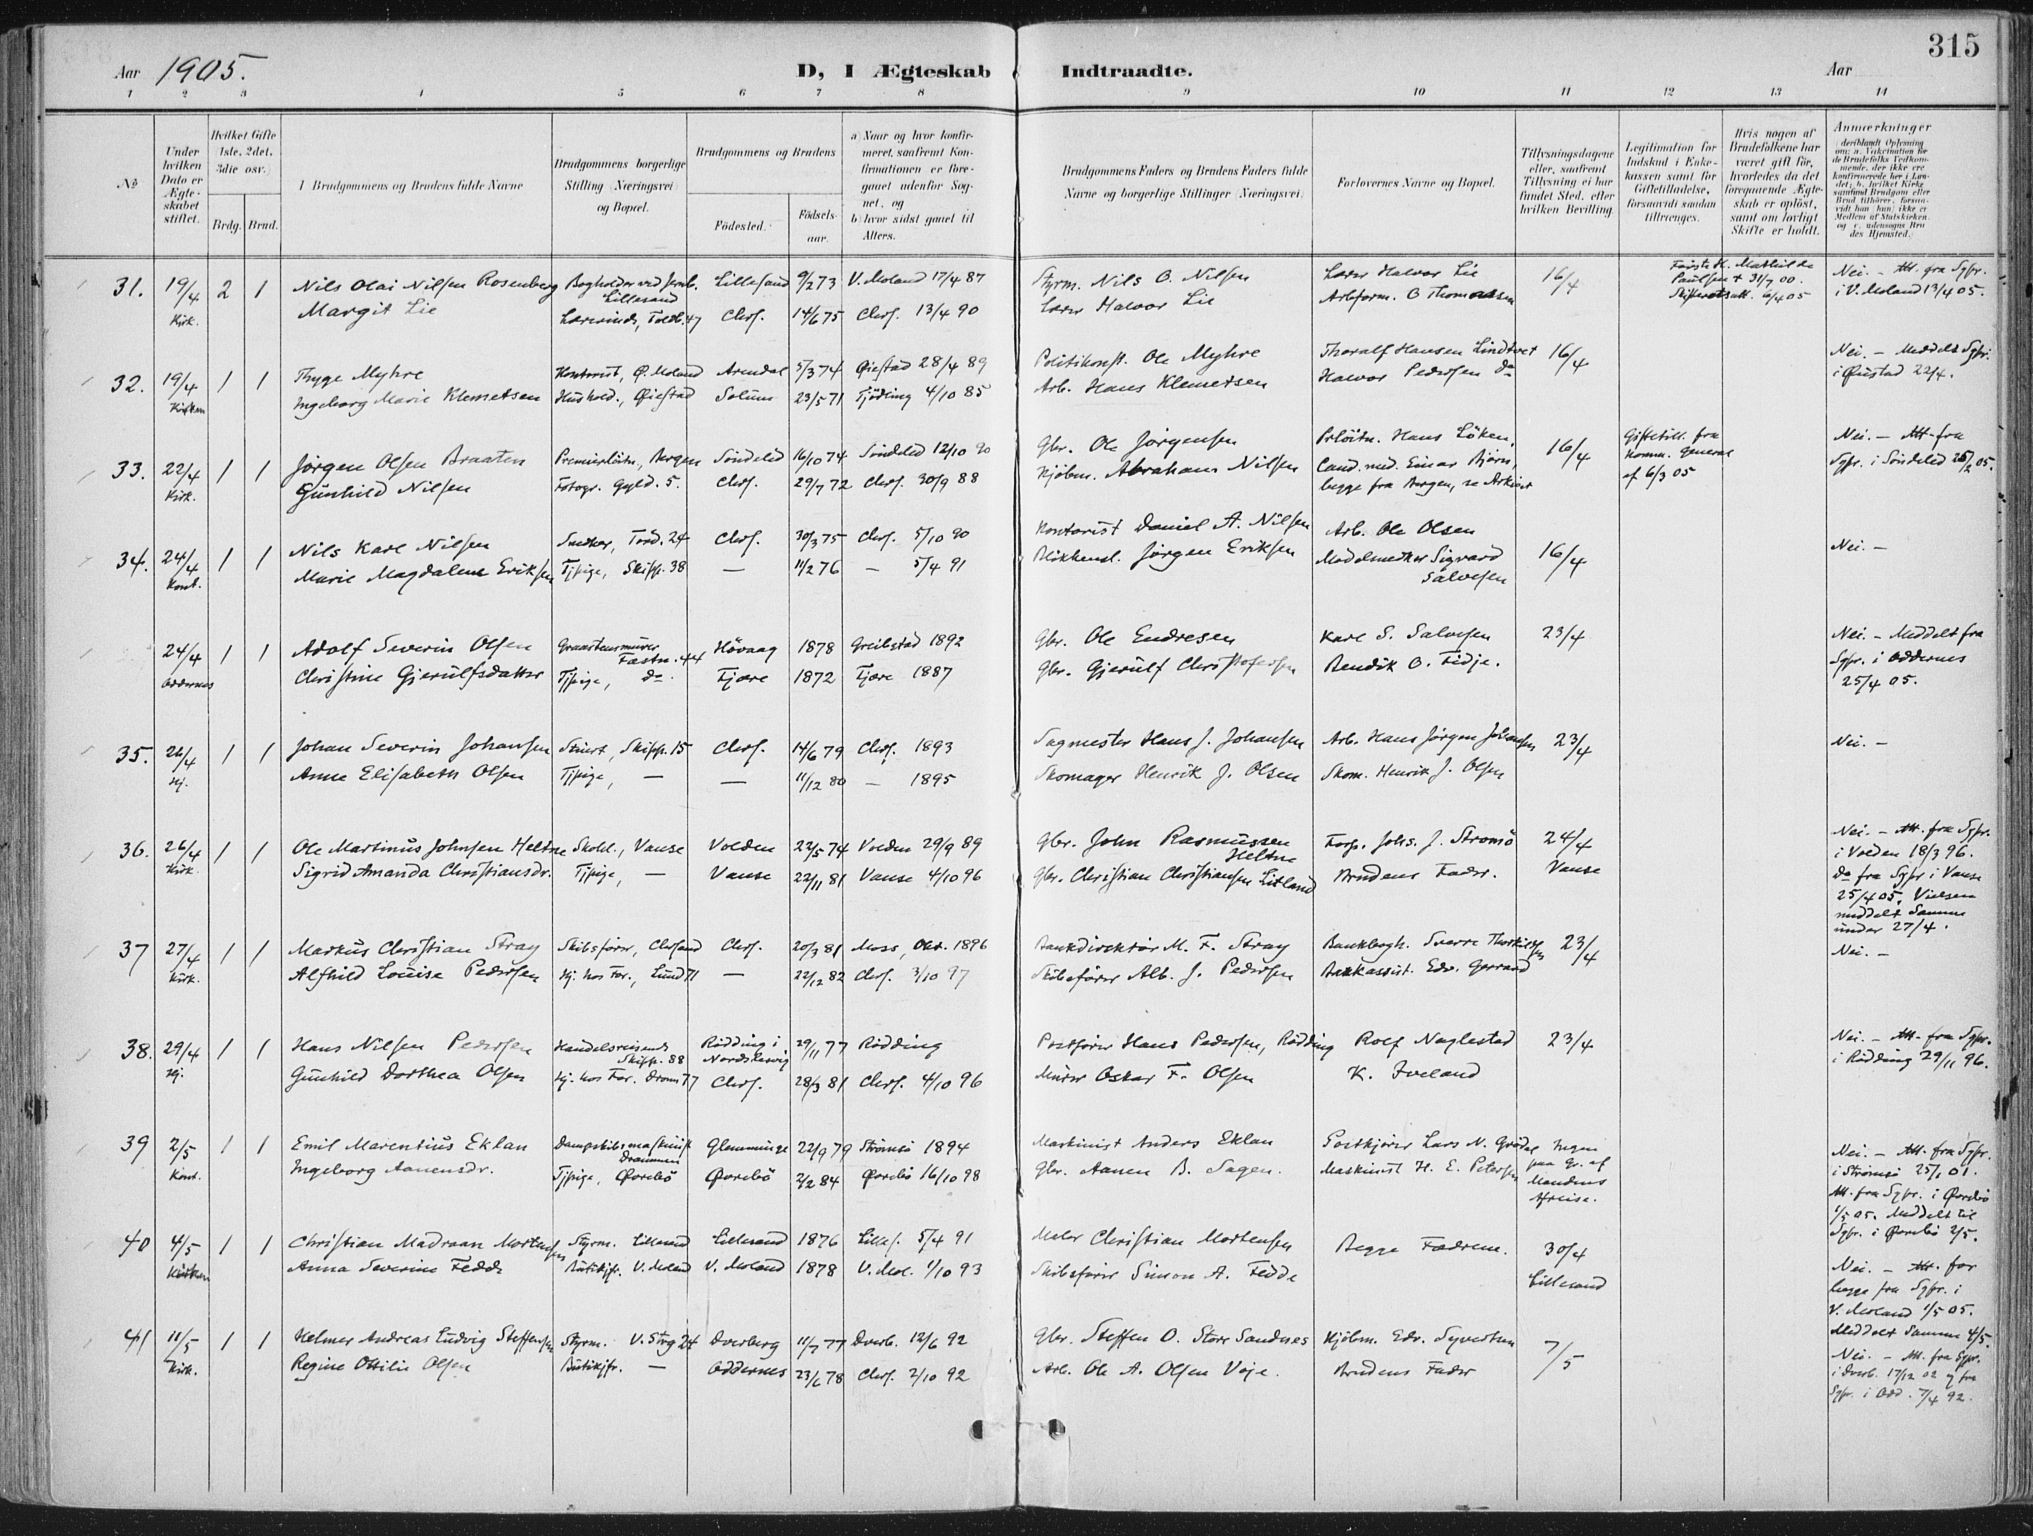 315
Aar 1905.
D, I Ægteskab Indtraadte.
Aar
1 2 3 4 5 6 7 8 9 10 11 12 13 14
No
Under hvilken Dato er Ægteskabet stiftet.
Hvilket Gifte 1ste, 2det, 3die osv.)
Brdg. Brud.
Brudgommens og Brudens fulde Navne
Brudgommens borgerlige Stilling (Næringsvei) og Bopæl.
Brudgommens og Brudens
Födested.
Födsels-aar.
a) Naar og hvor konfirmeret, samfremt Konfirmationen er foregaaet udenfor Sognet, og
b) hvor sidst gaaet til Alters.
Brudgommens Faders og Brudens Faders fulde Navne og borgerlige Stillinger (Næringsvei).
Forlovernes Navne og Bopæl.
Tillysningsdagene eller, saafremt Tillysning ei har fundet Sted, efter hvilken Bevilling.
Legitimation for Indskud i Enkekassen samt for Giftetilladelse, forsaavidt saadan tiltrænges.
Hvis nogen af Brudefolkene har været gift för, hvorledes da det foregaaende Ægteskab er oplöst, samt om lovligt Skifte er holdt.
Anmærkninger
31. 19/4 Kirk. 2 1
Nils Olai Nilsen Rosenberg Bogholder ved Jernb. Lillesand Lillesand 9/2 73 V. Moland 17/4 87 Styrm. Nils O. Nilsen Lærer Halvor Lie 16/4
Margit Lie Lærerinde, Toldb. 47 Chrs. 14/6 75 Chrs. 13/4 90 Lærer Halvor Lie Arbform. O Thomassen
Paulsen + 31/7 00. Skifteretsatt. 6/4 05
Nei. – Att. fra Sgpr. i V. Moland 13/4 05.
32. 19/4 Kirken 1 1
Thyge Myhre Kontorist, Ø. Moland Arendal 5/3 74 Øiestad 28/4 89 Politikonst. Ole Myhre Thoralf Hansen Lindtvet 16/4
Ingeborg Marie Klemetsen Hushold., Øiestad Solum 23/5 71 Tjödling 4/10 85 Arb. Hans Klemetsen Halvor Pedersen do
Nei. – Meddelt Sgpr. i Øiestad 22/4.
33. 22/4 Kirk. 1 1
Jörgen Olsen Braaten Premierlöitn., Bergen Söndeled 16/10 74 Söndeled 12/10 90 Gbr. Ole Jörgensen Prlöitn. Hans Löken, 16/4
Gunhild Nilsen Fotogr. Gyld. 5. Chrs. 29/7 72 Chrs. 30/9 88 Kjöbm. Abraham Nilsen Cand. med. Einar Bjørn, begge fra Bergen, se Arkivet
Giftetill. fra Komm. General af 6/3 05
Nei. – Att. fra Sgpr. i Söndeled 26/2 05.
34. 24/4 Kont. 1 1
Nils Karl Nilsen Snedker, Tord. 24 Chrs. 30/3 75 Chrs. 5/10 90 Kontorist Daniel A. Nilsen Arb. Ole Olsen 16/4
Marie Magdalene Eriksen Tjpige, Skipp. 38 — 11/2 76 — 5/4 91 Blikkensl. Jörgen Eriksen Modelsnedker Sigvard Salvesen
Nei. –
24/4 Oddernes 1 1
Adolf Severin Olsen Graastensmurer Fæstn. 44 Høvaag 1878 Greibstad 1892 Gbr. Ole Endresen Karl S. Salvesen 23/4
Christine Gjerulfsdatter Tjpige, do. Fjære 1872 Fjære 1887 Gbr. Gjerulf Christofersen Bendik O. Fidje.
Nei. – Meddelt fra Sgpr. i Oddernes 25/4 05.
35. 26/4 Hj. 1 1
Johan Severin Johansen Stuert, Skipp. 15 Chrs. 14/6 79 Chrs. 1893 Sagmester Hans J. Johansen Arb. Hans Jörgen Johansen 23/4
Anne Elisabeth Olsen Tjpige, — — 11/12 80 — 1895 Skomager Henrik J. Olsen Skom. Henrik J. Olsen
Nei. –
36. 26/4 Kirk. 1 1
Ole Martinus Johnsen Heltne Skohl., Vanse Volden 22/5 74 Volden 29/9 89 Gbr. John Rasmussen Heltne Forp. Johs. J. Stromö 24/4
Sigrid Amanda Christiansdr. Tjpige, — Vanse 22/11 81 Vanse 4/10 96 Gbr. Christian Christiansen Listand Brudens Fader. Vanse
Nei. – Att. fra Sgpr. i Volden 18/3 96. Do fra Sgpr i Vanse 25/4 05. Vielsen meddelt Samme under 27/4.
37 27/4 Kirk. 1 1
Markus Christian Stray Skibsförer, Chrsand Chrs. 20/3 81 Moss, Okt. 1896 Bankdirektör M. F. Stray Bankbogh. Sverre Thorkildsen 23/4
Alfhild Louise Pedersen Hj. hos For., Lund 71 — 22/12 82 Chrs. 3/10 97 Skibsförer Alb. J. Pedersen Bankassist. Edv. Gerrard
Nei. –
38. 29/4 Hj. 1 1
Hans Nilsen Pedersen Handelsreisende Skipp. 88 Rödding i Nordslesvig 29/11 77 Rödding Postförer Hans Pedersen, Rödding Rolf Naglestad 23/4
Gunhild Dorthea Olsen Hj. hos For. Dronn 77 Chrs. 28/3 81 Chrs. 4/10 96 Murer Oskar F. Olsen K. Iveland
Nei. – Att. fra Sgpr. i Rödding 29/11 96.
39 2/5 Kont. 1 1
Emil Marentius Eklan Dampskibsmaskinist Drammen Glemminge 22/9 79 Strömsö 1894 Maskinist Anders Eklan Postkjörer Lars N. Grödal Ingen paa Gr. af Mandens Afreise.
Ingeborg Aanensdr. Tjpige, Øvrebö Øvrebö 2/2 84 Øvrebö 16/10 98 Gbr. Aanen B. Sagen. Maskinist H. E. Petersen
Nei. – Att. fra Sgpr. i Strömsö 25/1 01. Att. fra Sgpr. i Øvrebö 1/5 05. Meddelt til Sgpr. i Øvrebö 2/5.
40 4/5 Kirken 1 1
Christian Madvaan Mortensen Styrm. Lillesand Lillesand 1876 Lilles. 5/4 91 Maler Christian Mortensen Begge Fædrene. 30/4
Anna Severine Fedde Butikfr. V. Moland V. Moland 1878 V. Mol. 1/10 93 Skibsförer Simon A. Fedde Lillesand
Nei. – Att. for begge fra Sgpr. i V. Moland 1/5 05. Meddelt Samme 4/5.
41 11/5 Kirk. 1 1
Helmer Andreas Ludvig Steffensen Styrm. V. Strg 24 Dverberg 11/7 77 Dverb. 12/6 92 Gbr. Steffen O. Store Sandnes Kjöbm. Edv. Syvertsen 7/5
Regine Otilie Olsen Butikfr. — Oddernes 23/6 78 Chrs. 2/10 92 Arb. Ole A. Olsen Voje. Brudens Fader
Nei. – Att. fra Sgpr. i Dverb. 17/12 02 og fra Sgpr. i Odd. 7/4 92.